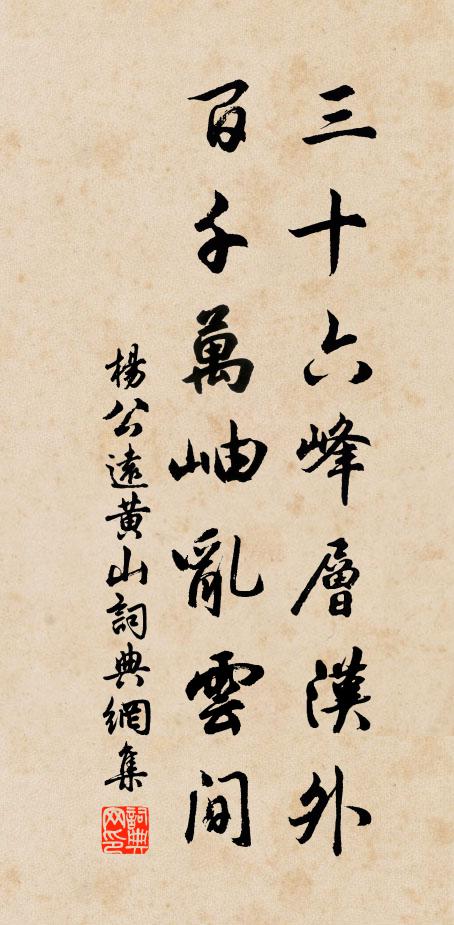 三十六峰層漢外
百千萬岫亂雲間
楊公遠黃山詞典網集
詞典网印